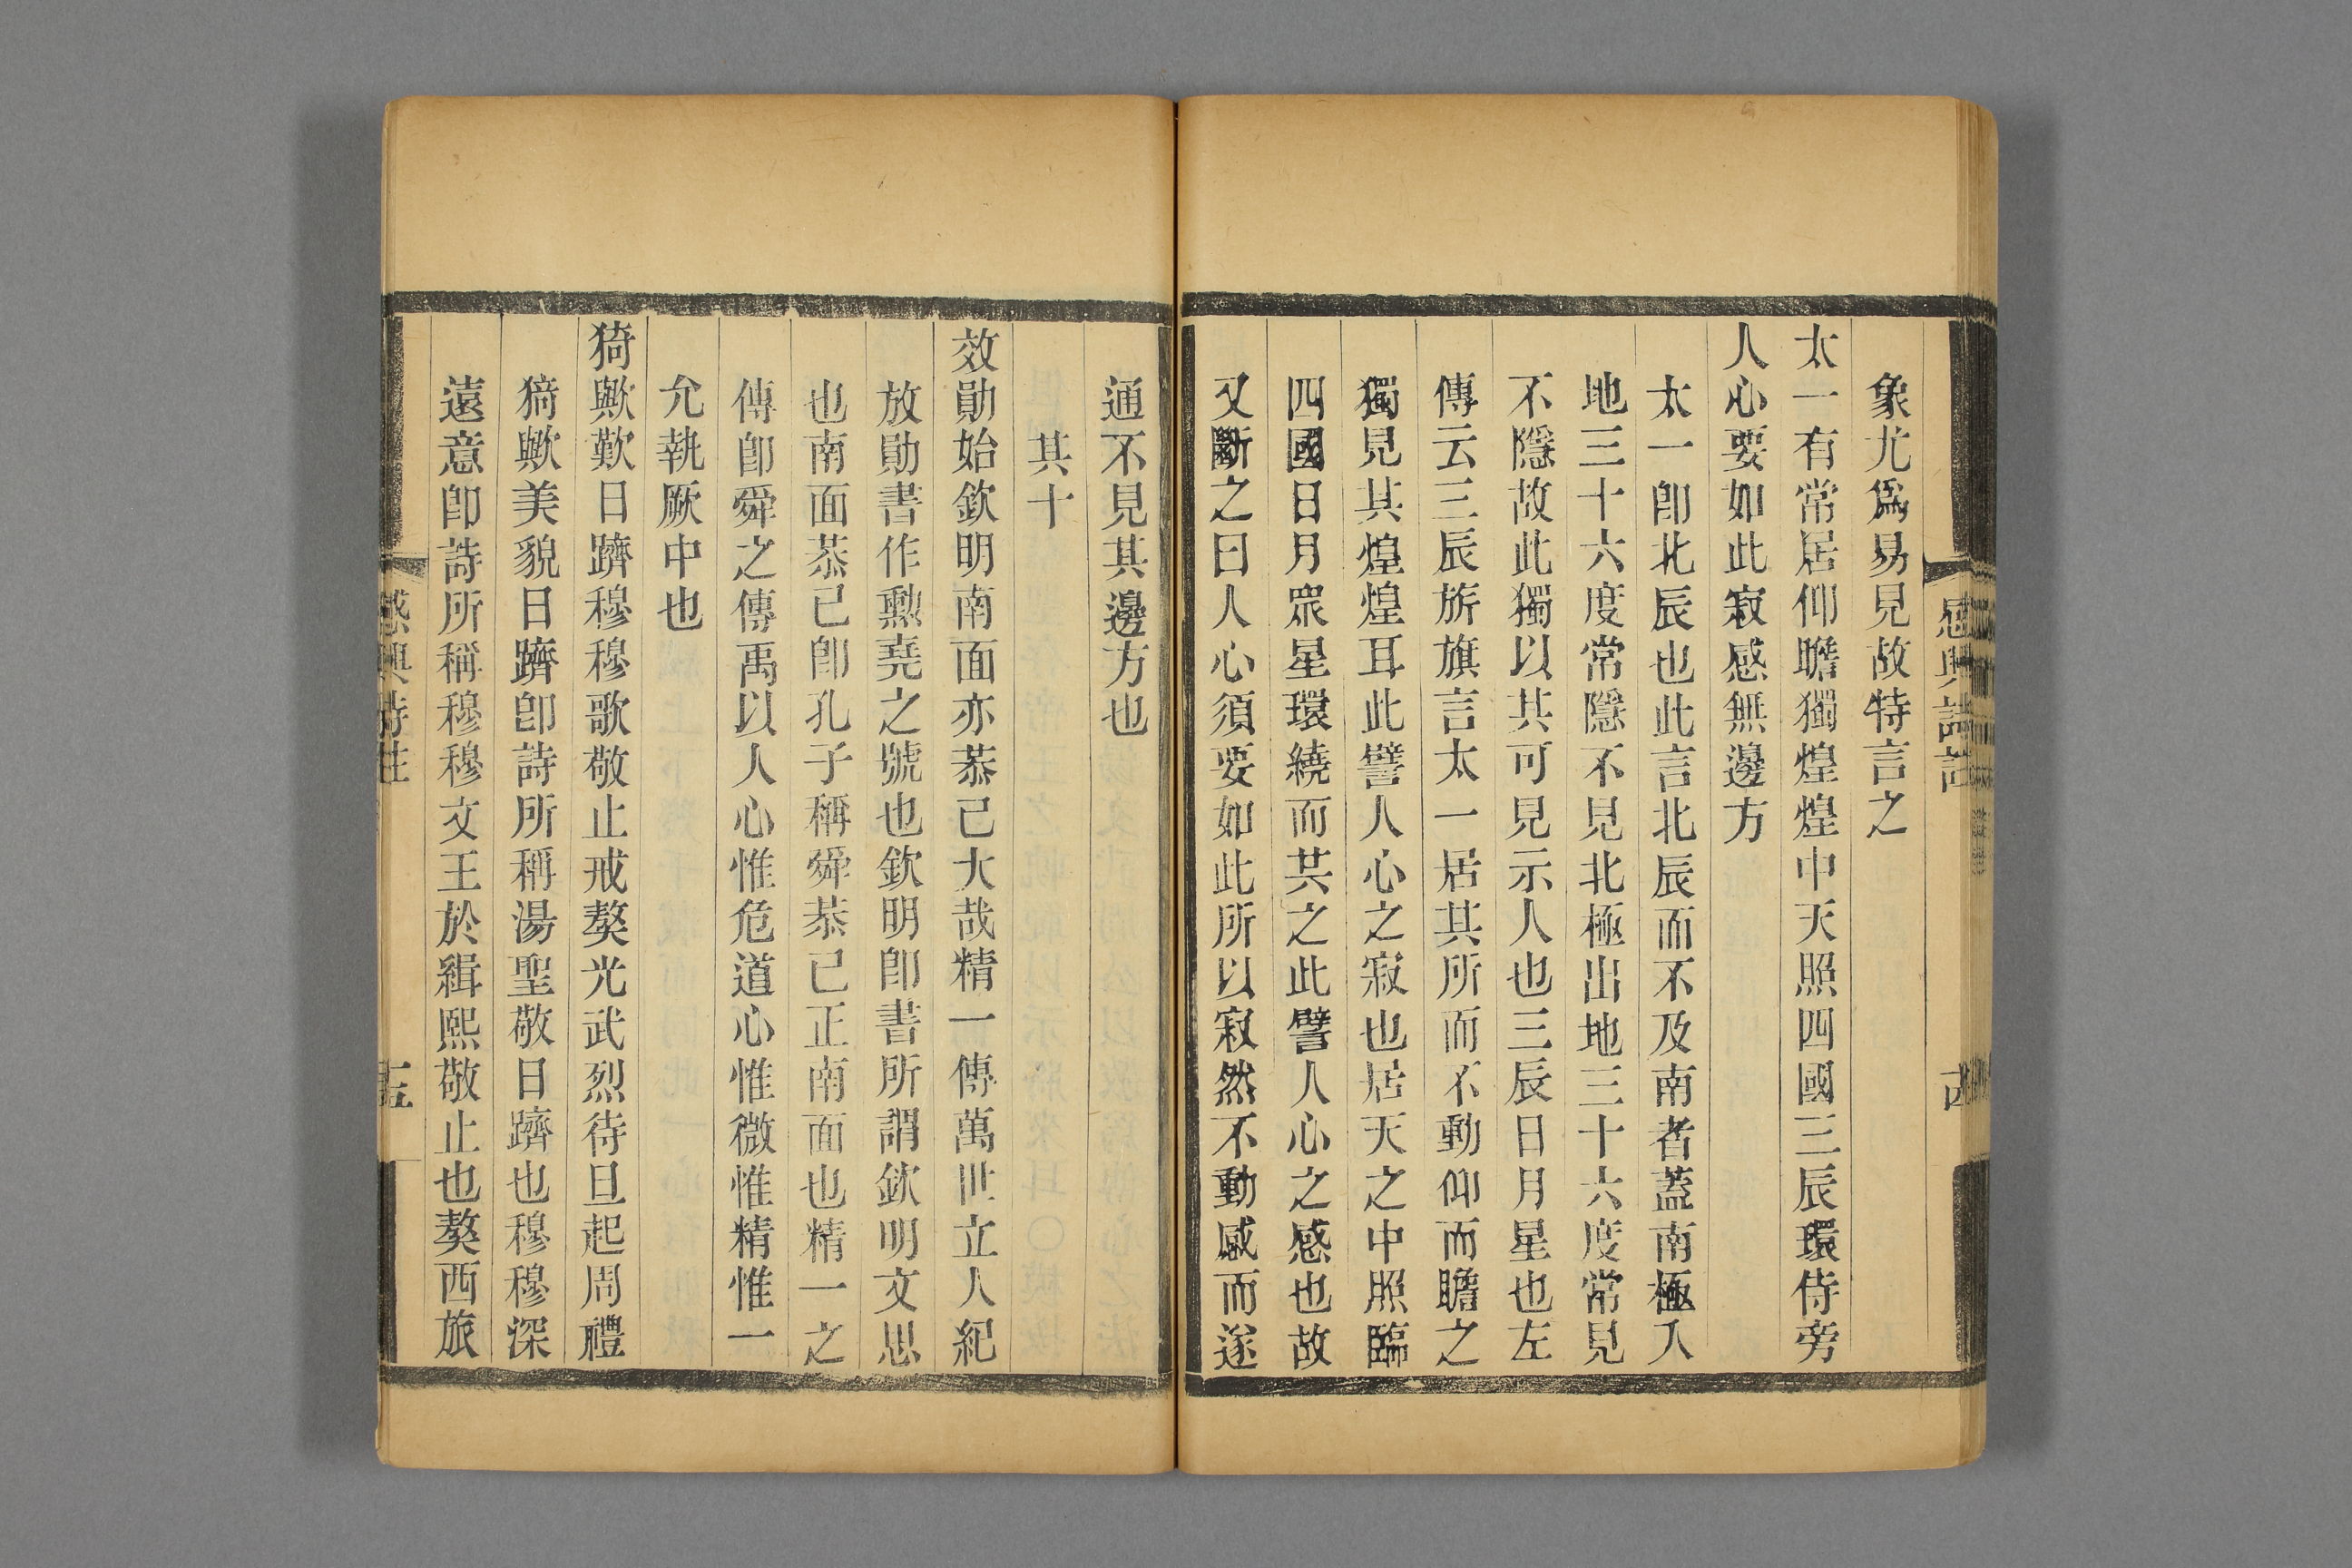 象尤爲易見故特言之
太一有常居仰瞻獨煌煌中天照四國三辰環侍旁
人心要如此寂感無邊方
太一卽北辰也此言北辰而不及南者蓋南極入
地三十六度常隱不見北極出地三十六度常見
不隱故此獨以其可見示人也三辰日月星也左
傳云三辰旂旗言太一居其所而不動仰而瞻之
獨見其煌煌耳此譬人心之寂也居天之中照臨
四國日月眾星環繞而共之此譬人心之感也故
又斷之曰人心須要如此所以寂然不動感而遂
通不見其邊方也
其十
放勛始欽明南面亦恭己大哉精一傳萬世立人紀
放勛書作勳堯之號也欽明卽書所謂欽明文思
也南面恭己卽孔子稱舜恭己正南面也精一之
傳卽舜之傳禹以人心惟危道心惟微惟精惟一
允執厥中也
猗歟歎日躋穆穆歌敬止戒獒光武烈待旦起周禮
猗歟美貌日躋卽詩所稱湯聖敬日躋也穆穆深
遠意卽詩所稱穆穆文王於緝熙敬止也獒西旅
感興詩註
十五